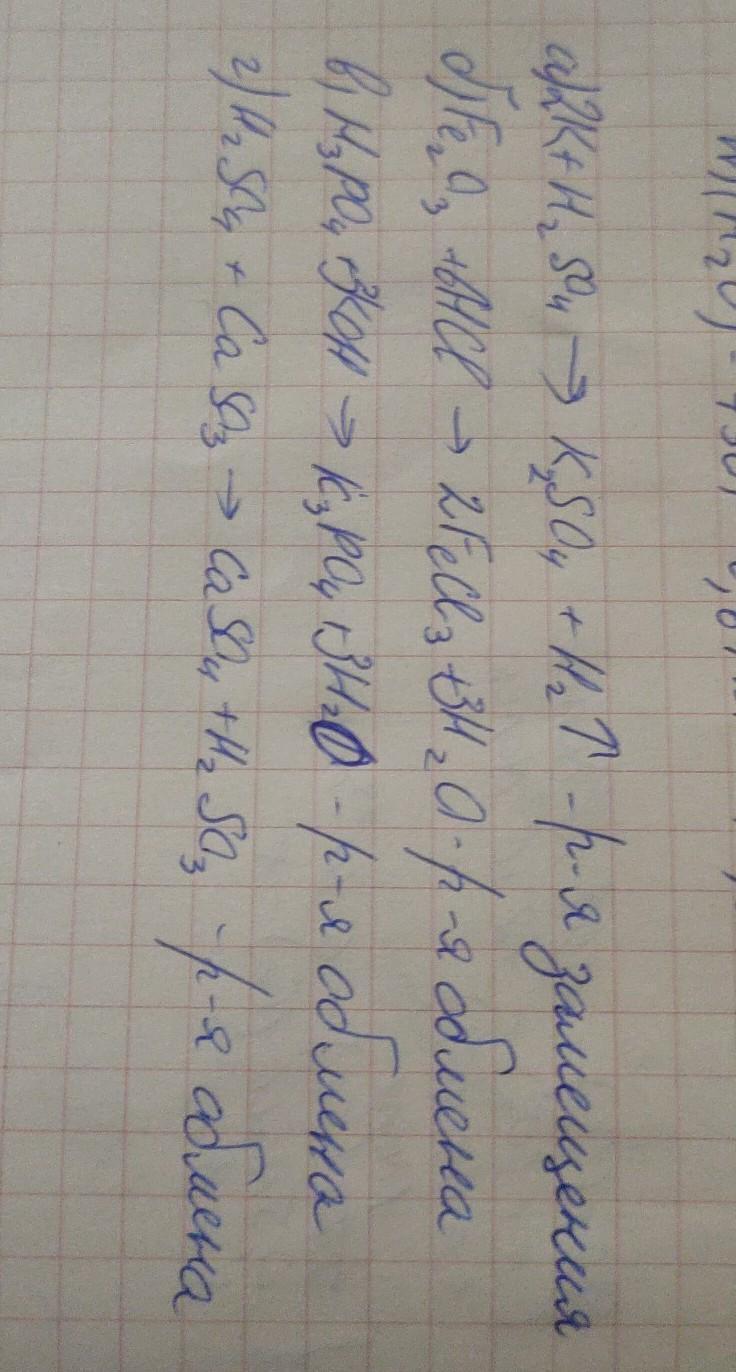 а) 2K + H₂SO₄ → K₂SO₄ + H₂↑ - р-я замещения
б) Fe₂O₃ + 6HCl → 2FeCl₃ + 3H₂O - р-я обмена
в) H₃PO₄ + 3KOH → K₃PO₄ + 3H₂O - р-я обмена
г) H₂SO₄ + CaSO₃ → CaSO₄ + H₂SO₃ - р-я обмена